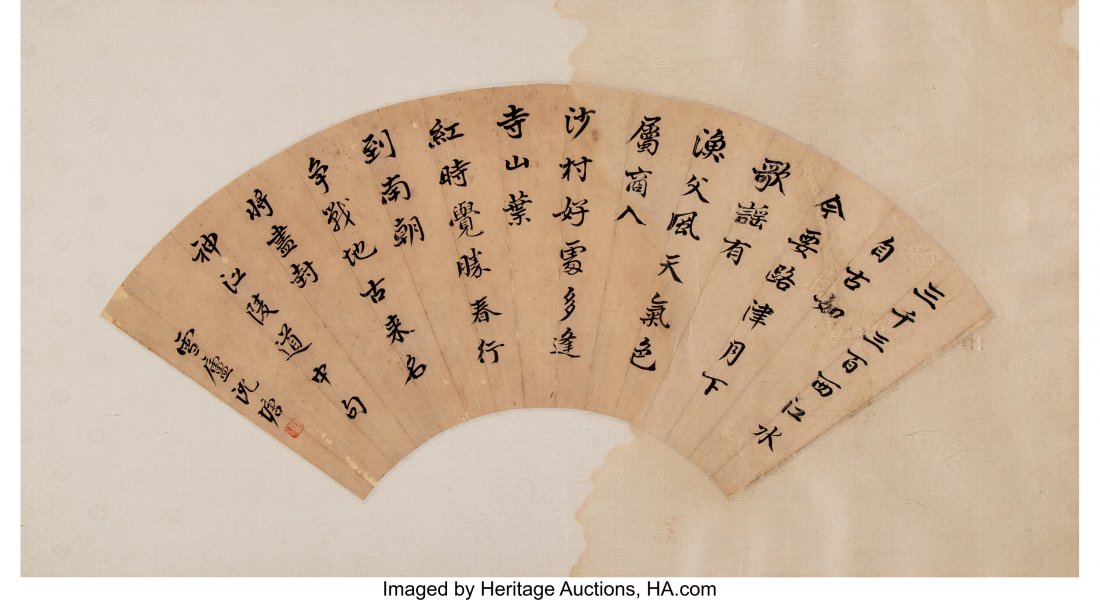 三千三百西江水
自古如
今要路津月下
歌謠有
漁父風天氣色
屬商人
沙村好處多逢
寺山葉
紅時覺勝春行
到南朝
争戰地古来名
将盡封
神江陵道中句
雪廬沈塘
Imaged by Heritage Auctions, HA.com